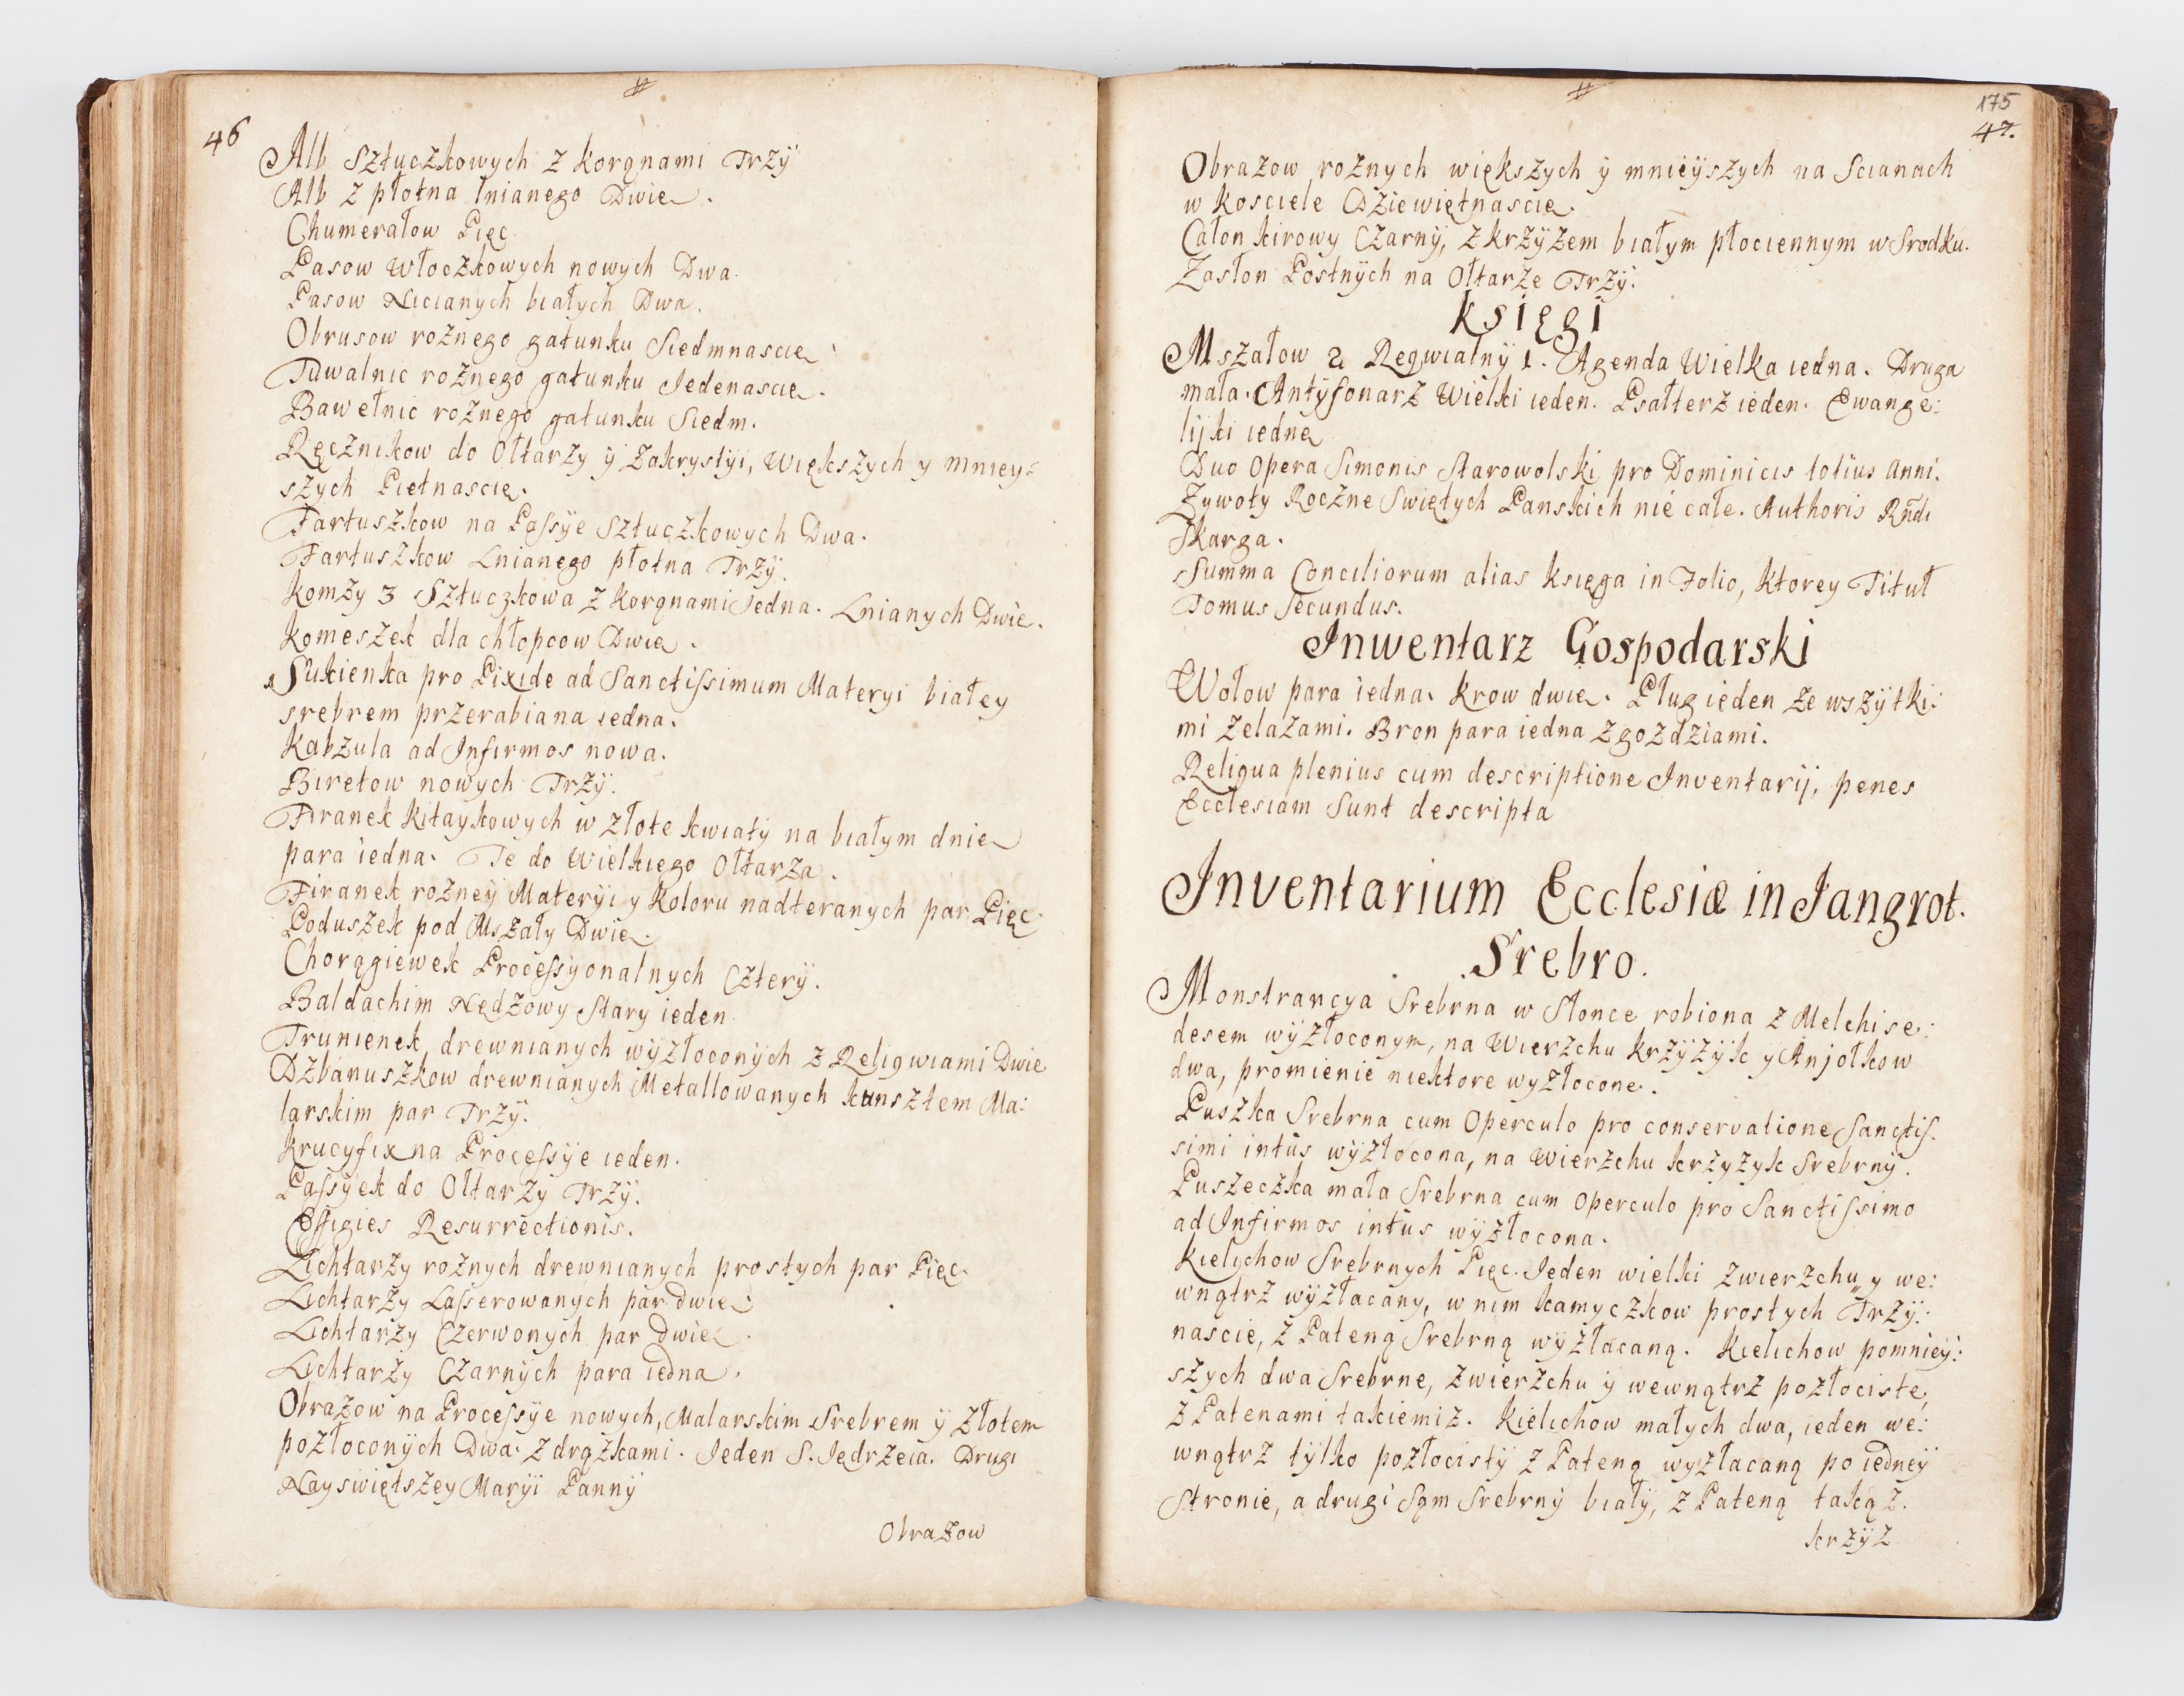 46
Alb Sztuczkowych z korąnami Trzÿ
Alb z płotna lnianego Dwie.
Chumerałow Pięc
Pasow Włoczkowych nowych Dwa.
Pasow Nicianych białych Dwa.
Obrusow rożnego gatunku Siedmnascie
Tuwalnic rożnego gatunku Jedenascie.
Bawełnic rożnego gatunku Siedm.
Ręcznikow do Ołtarzy ÿ Zakrystyi, Większych y mniey=
szych Piętnascie.
Fartuszkow na Paſsye Sztuczkowych Dwa.
Fartuszkow Lnianego płotna Trzÿ.
Komży 3 Sztuczkowa z korąnami Jedna. Lnianych Dwie.
Komeszek dla chłopcow Dwie.
Sukienka pro Pixide ad Sanctiſsimum Materyi białey
srebrem przerabiana iedna.
Kabzula ad Infirmos nowa.
Biretow nowych Trzÿ.
Firanek Kitaykowych w złote kwiatÿ na białym dnie
para iedna. Te do Wielkiego Ołtarza.
Firanek rożneÿ Materÿi y Koloru nadteranych par Pięc.
Poduszek pod Mszały Dwie.
Chorągiewek Proceſsyonalnych Czterÿ.
Baldachim Nędzowy Stary ieden
Trunienek drewnianych wÿzłoconÿch z Religwiami Dwie
Dzbanuszkow drewnianych Metallowanych kunsztem Ma:
larskim par Trzÿ.
Krucyfix na Proceſsÿe ieden.
Paſsÿek do Ołtarzÿ Trzÿ.
Effigies Resurrectionis.
Lichtarży rożnych drewnianych prostych par Pięc.
Lichtarży Laſserowanych par dwie
Lichtarży Czerwonych par Dwie.
Lichtarży Czarnÿch para iedna.
Obrazow na Proceſsÿe nowych, Malarskim Srebrem ÿ złotem
pozłoconÿch Dwa. z drążkami. Jeden S. Jędrzeia. Drugi
Nayswiętszey Maryi Pannÿ
Obrazow
175
47.
Obrazow rożnych większych ÿ mnieÿszych na Scianach
w Kosciele Dziewiętnascie.
Całon kirowy Czarnÿ, z krzÿżem białym płociennym w Srodku.
Zasłon Postnÿch na Ołtarze Trzÿ.
Księgi
Mszałow 2 Reqwialnÿ 1. Agenda Wielka iedna. Druga
mała. Antÿfonarz Wielki ieden. Psałterz ieden. Ewange:
lijki iedne
Duo Opera Simonis Starowolski pro Dominicis totius Anni.
Zywoty Roczne Swiętych Panskich nie całe. Authoris Rñdi
Skarga.
Summa Conciliorum alias księga in Folio, Ktorey Tituł
Tomus Secundus.
Inwentarz Gospodarski
Wołow para iedna. Krow dwie. Pług ieden ze wszÿtki:
mi żelazami. Bron para iedna z gozdziami.
Reliqua plenius cum descriptione Inventarij, penes
Ecclesiam Sunt descripta
Inventarium Ecclesiæ in Jangrot.
Srebro.
Monstrancya Srebrna w Słonce robiona z Melchise:
desem wÿzłoconym, na Wierzchu krzÿżÿk y Anjołkow
dwa, promienie niektore wyzłocone.
Puszka Srebrna cum Operculo pro conservatione Sanctiſ=
simi intus wÿzłocona, na Wierzchu krzyżyk Srebrnÿ.
Puszeczka mała Srebrna cum operculo pro Sanctiſsimo
ad Infirmos intus wÿzłocona.
Kielichow Srebrnych Pięc. Jeden wielki zwierzchu y we:
wnątrz wÿzłacany, w nim kamyczkow prostych Trzÿ:
nascie, z Pateną Srebrną wyzłacaną. Kielichow pomnieÿ:
szych dwa Srebrne, zwierzchu ÿ wewnątrz pozłociste,
z Patenami takiemiz. Kielichow małych dwa, ieden we:
wnątrz tÿlko pozłocistÿ z Pateną wyzłacaną po iedneÿ
Stronie, a drugi Sąm Srebrnÿ białÿ, z Pateną takąz.
krzÿż